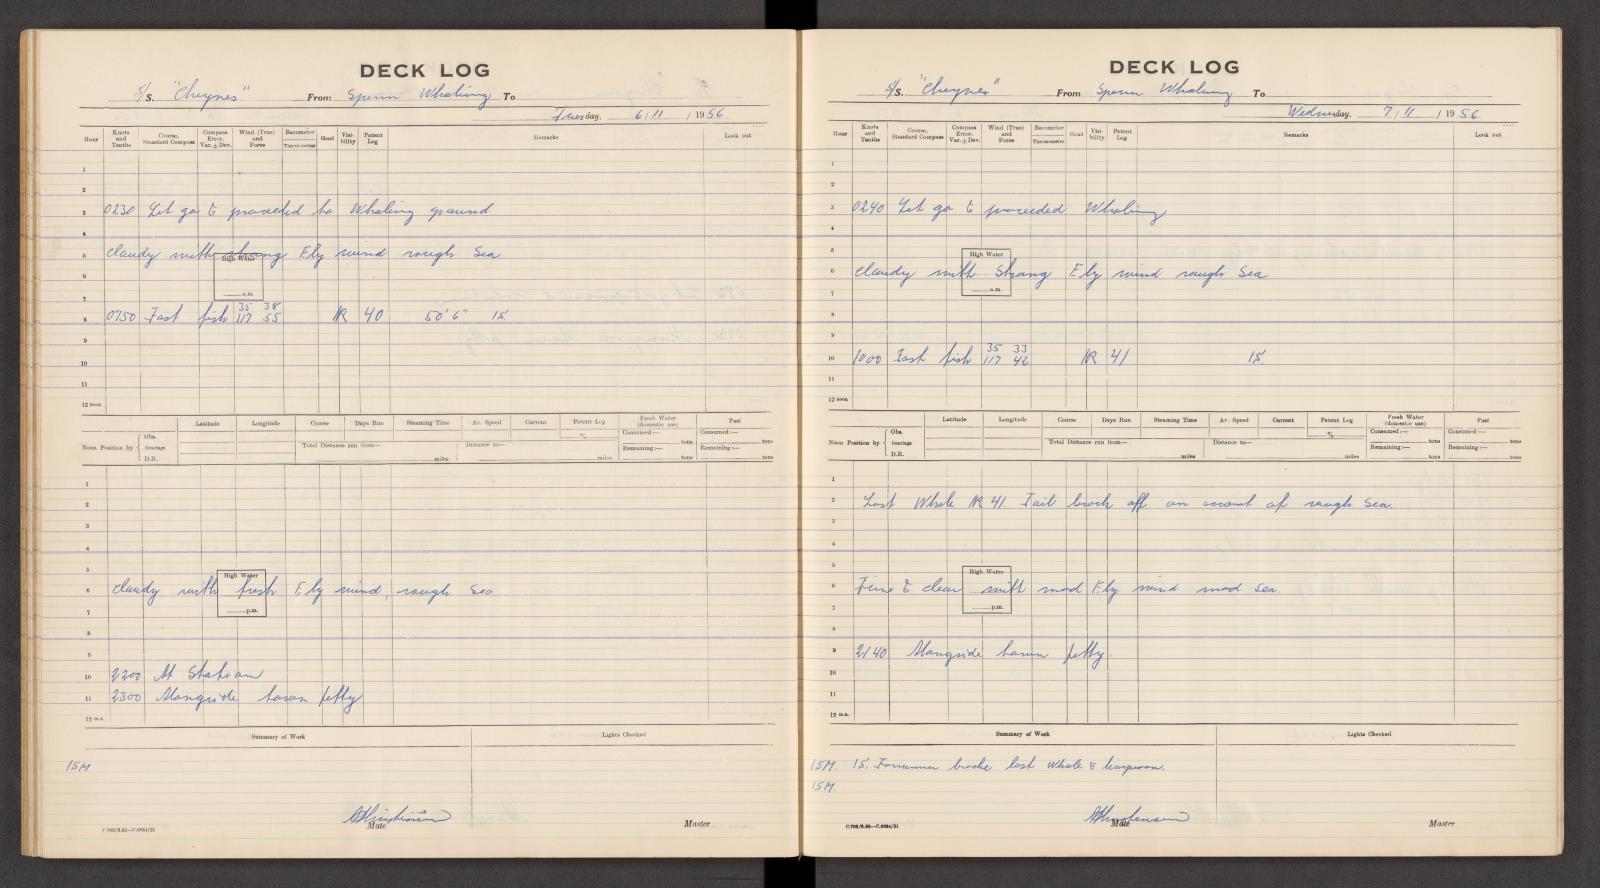 DECK LOG
S/S. "Cheynes" From Sperm Whaling To
Tuesday, 6/11/1956
Hour Knots and Tenths Course, Standard Compass Compass Error. Var. ± Dev. Wind (True) and Force Barometer Thermometer Cloud Visibility Patent Log Remarks Look out
1
2
3 0230 Let go & proceeded to Whaling ground
4
5 cloudy with strong E'ly wind rough Sea
High Water
6
a.m.
7
35 38
8 0750 Fast fish 117 55 NR 40 50' 6" 15'
9
10
11
12 noon
Latitude Longitude Course Days Run Steaming Time Av. Speed Current Patent Log Fresh Water (domestic use) Fuel
Noon Position by Obs. Bearings D.R. Total Distance run from— miles Distance to— miles % Consumed:— tons Remaining:— tons Consumed:— tons Remaining:— tons
1
2
3
4
5
High Water
6 cloudy with fresh E'ly wind, rough Sea
7 p.m.
8
9
10 2200 At Station
11 2300 Alongside town jetty
12 m.n.
Summary of Work Lights Checked
15M
Mate Master
C.702/8.52—C.6064/51
DECK LOG
S/S. "Cheynes" From Sperm Whaling To
Wednesday, 7/11/1956
Hour Knots and Tenths Course, Standard Compass Compass Error. Var. ± Dev. Wind (True) and Force Barometer Thermometer Cloud Visibility Patent Log Remarks Look out
1
2
3 0240 Let go & proceeded Whaling
4
5
High Water
6 cloudy with Strong E'ly wind rough Sea
a.m.
7
8
9
35 33
10 1000 Fast fish 117 42 NR 41 15'
11
12 noon
Latitude Longitude Course Days Run Steaming Time Av. Speed Current Patent Log Fresh Water (domestic use) Fuel
Noon Position by Obs. Bearings D.R. Total Distance run from— miles Distance to— miles % Consumed:— tons Remaining:— tons Consumed:— tons Remaining:— tons
1
2 Lost Whale NR 41. Tail brock off on account of rough Sea.
3
4
5
High Water
6 Fine & clear with mod E'ly wind mod Sea.
7 p.m.
8
9 2140 Alongside town jetty.
10
11
12 m.n.
Summary of Work Lights Checked
15M. 15'. Forrunner broke lost Whale & harpoon.
15M.
AChristensen
Mate Master
C.702/8.52—C.6064/51